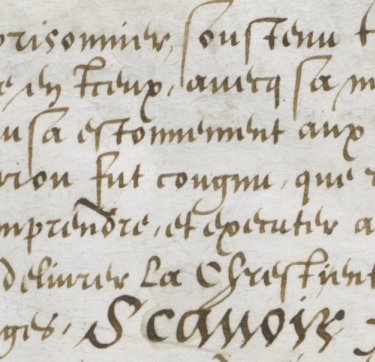 prisonnier, soustenu
e en iceux, avecq sa
usa estonnement aux
fut congnu, que
mprendre, et executer a
delivrer La Chrestient
ges, Scavoir